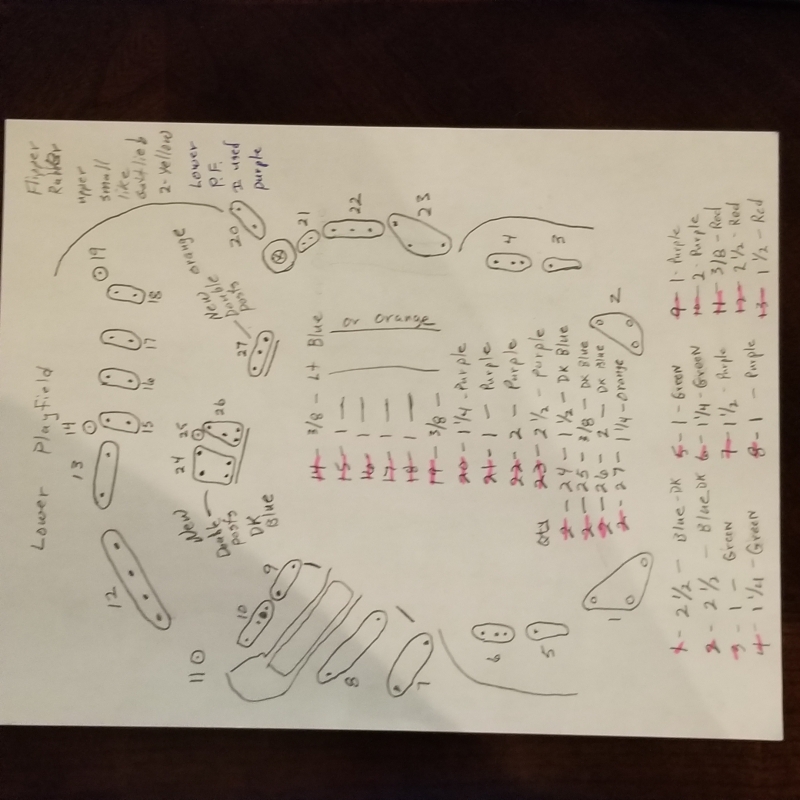 Lower Playfield
Flipper
Rubber
upper
small
like
Gottlieb
2-Yellow
Lower
P.F.
I used
purple
12
13
14
15
16
17
18
19
20
21
22
23
11
10
9
8
7
24
25
26
27
New
Double
posts
DK
Blue
New
Double
posts
orange
14 - 3/8 - Lt Blue
15 - 1 -
16 - 1 -
17 - 1 -
18 - 1 -
19 - 3/8 -
or orange
20 - 1 1/4 - Purple
21 - 1 - Purple
22 - 2 - Purple
23 - 2 1/2 - purple
Qty
2 - 24 - 1 1/2 - DK Blue
2 - 25 - 3/8 - DK Blue
2 - 26 - 2 - DK Blue
2 - 27 - 1 1/4 - orange
6
5
4
3
1
2
1 - 2 1/2 - Blue-DK
2 - 2 1/2 - Blue DK
3 - 1 - Green
4 - 1 1/4 - Green
5 - 1 - Green
6 - 1 1/4 - Green
7 - 1 1/2 - Purple
8 - 1 - Purple
9 - 1 - Purple
10 - 2 - Purple
11 - 3/8 - Red
12 - 2 1/2 - Red
13 - 1 1/2 - Red